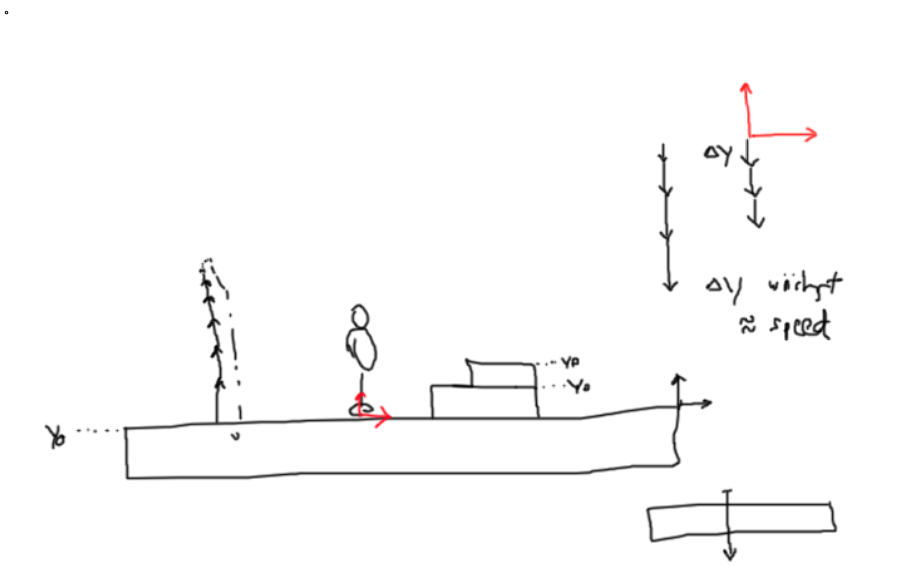 ΔY
ΔY wächst
≈ speed
Y0
Y0
Y0